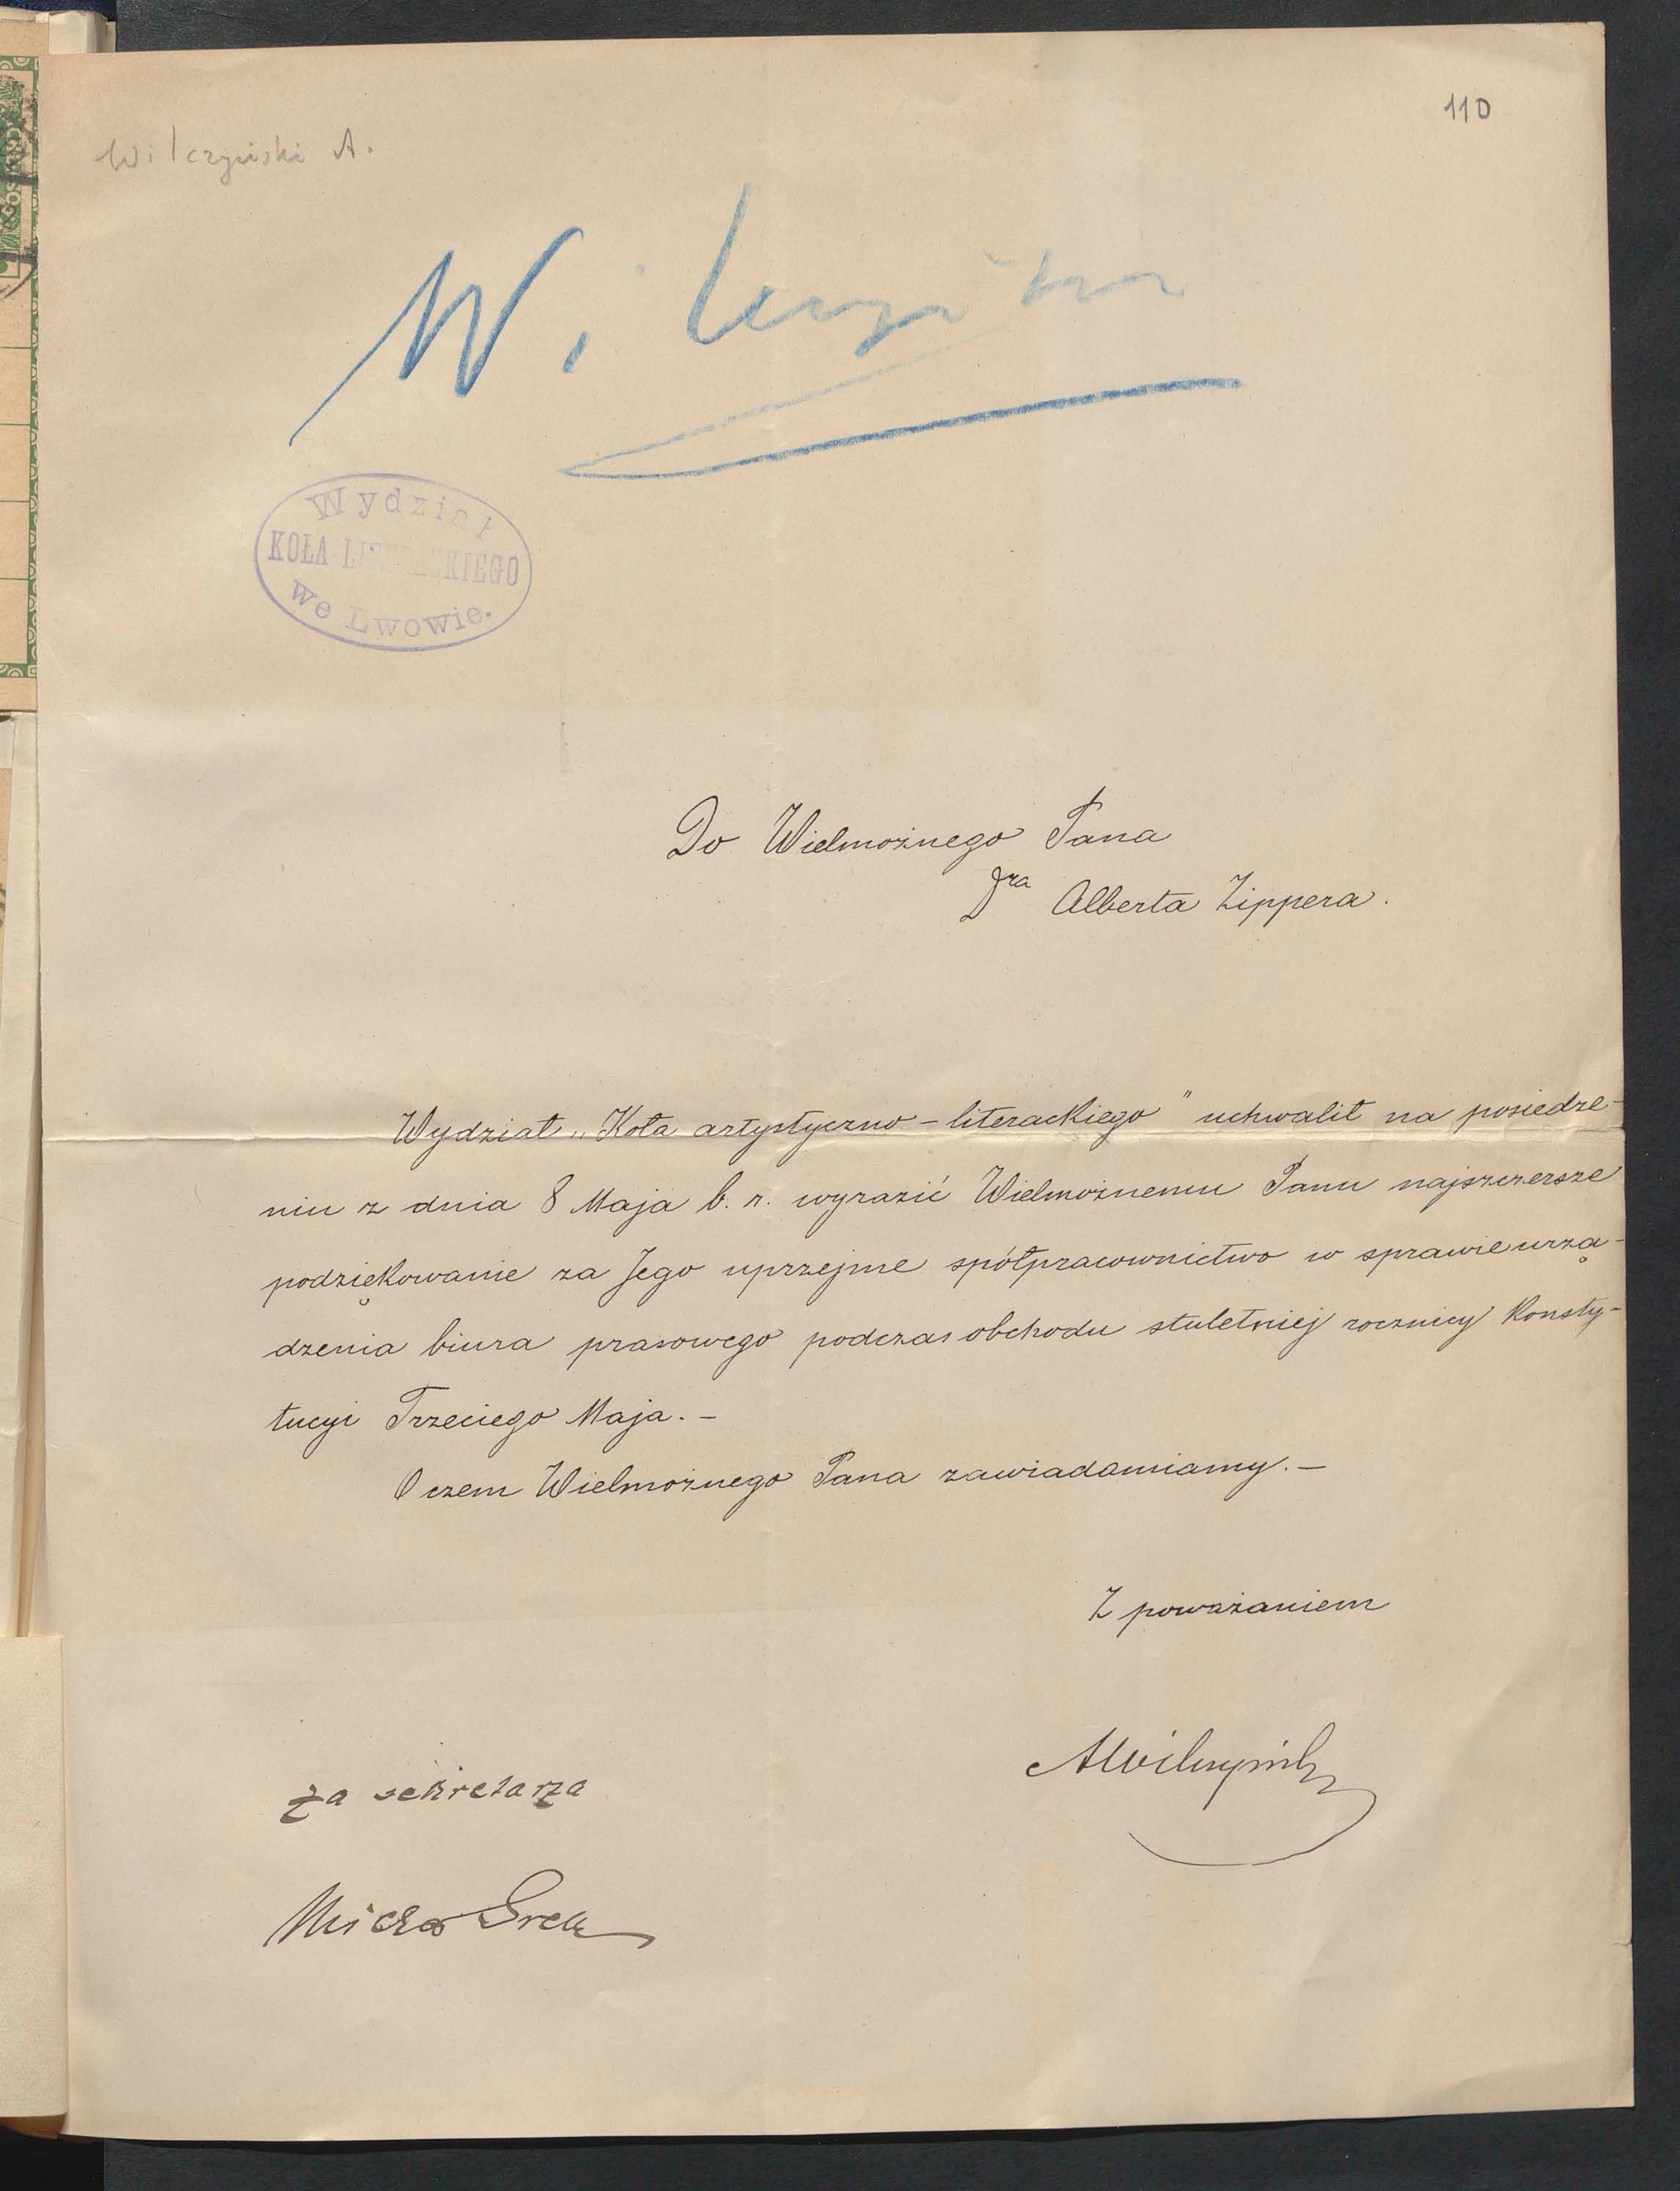 110
Wilczyński A.
Wydział
KOŁA LITERACKIEGO
we Lwowie.
Do Wielmożnego Pana
Dra Alberta Zippera.
Wydział „Koła artystyczno-literackiego" uchwalił na posiedze-
niu z dnia 8 Maja b. r. wyrazić Wielmożnemu Panu najszczersze
podziękowanie za Jego uprzejme spółpracownictwo w sprawie urzą-
dzenia biura prasowego podczas obchodu stuletniej rocznicy Konsty-
tucyi Trzeciego Maja. -
O czem Wielmożnego Pana zawiadamiamy. -
Z poważaniem
AWilczyński
za sekretarza